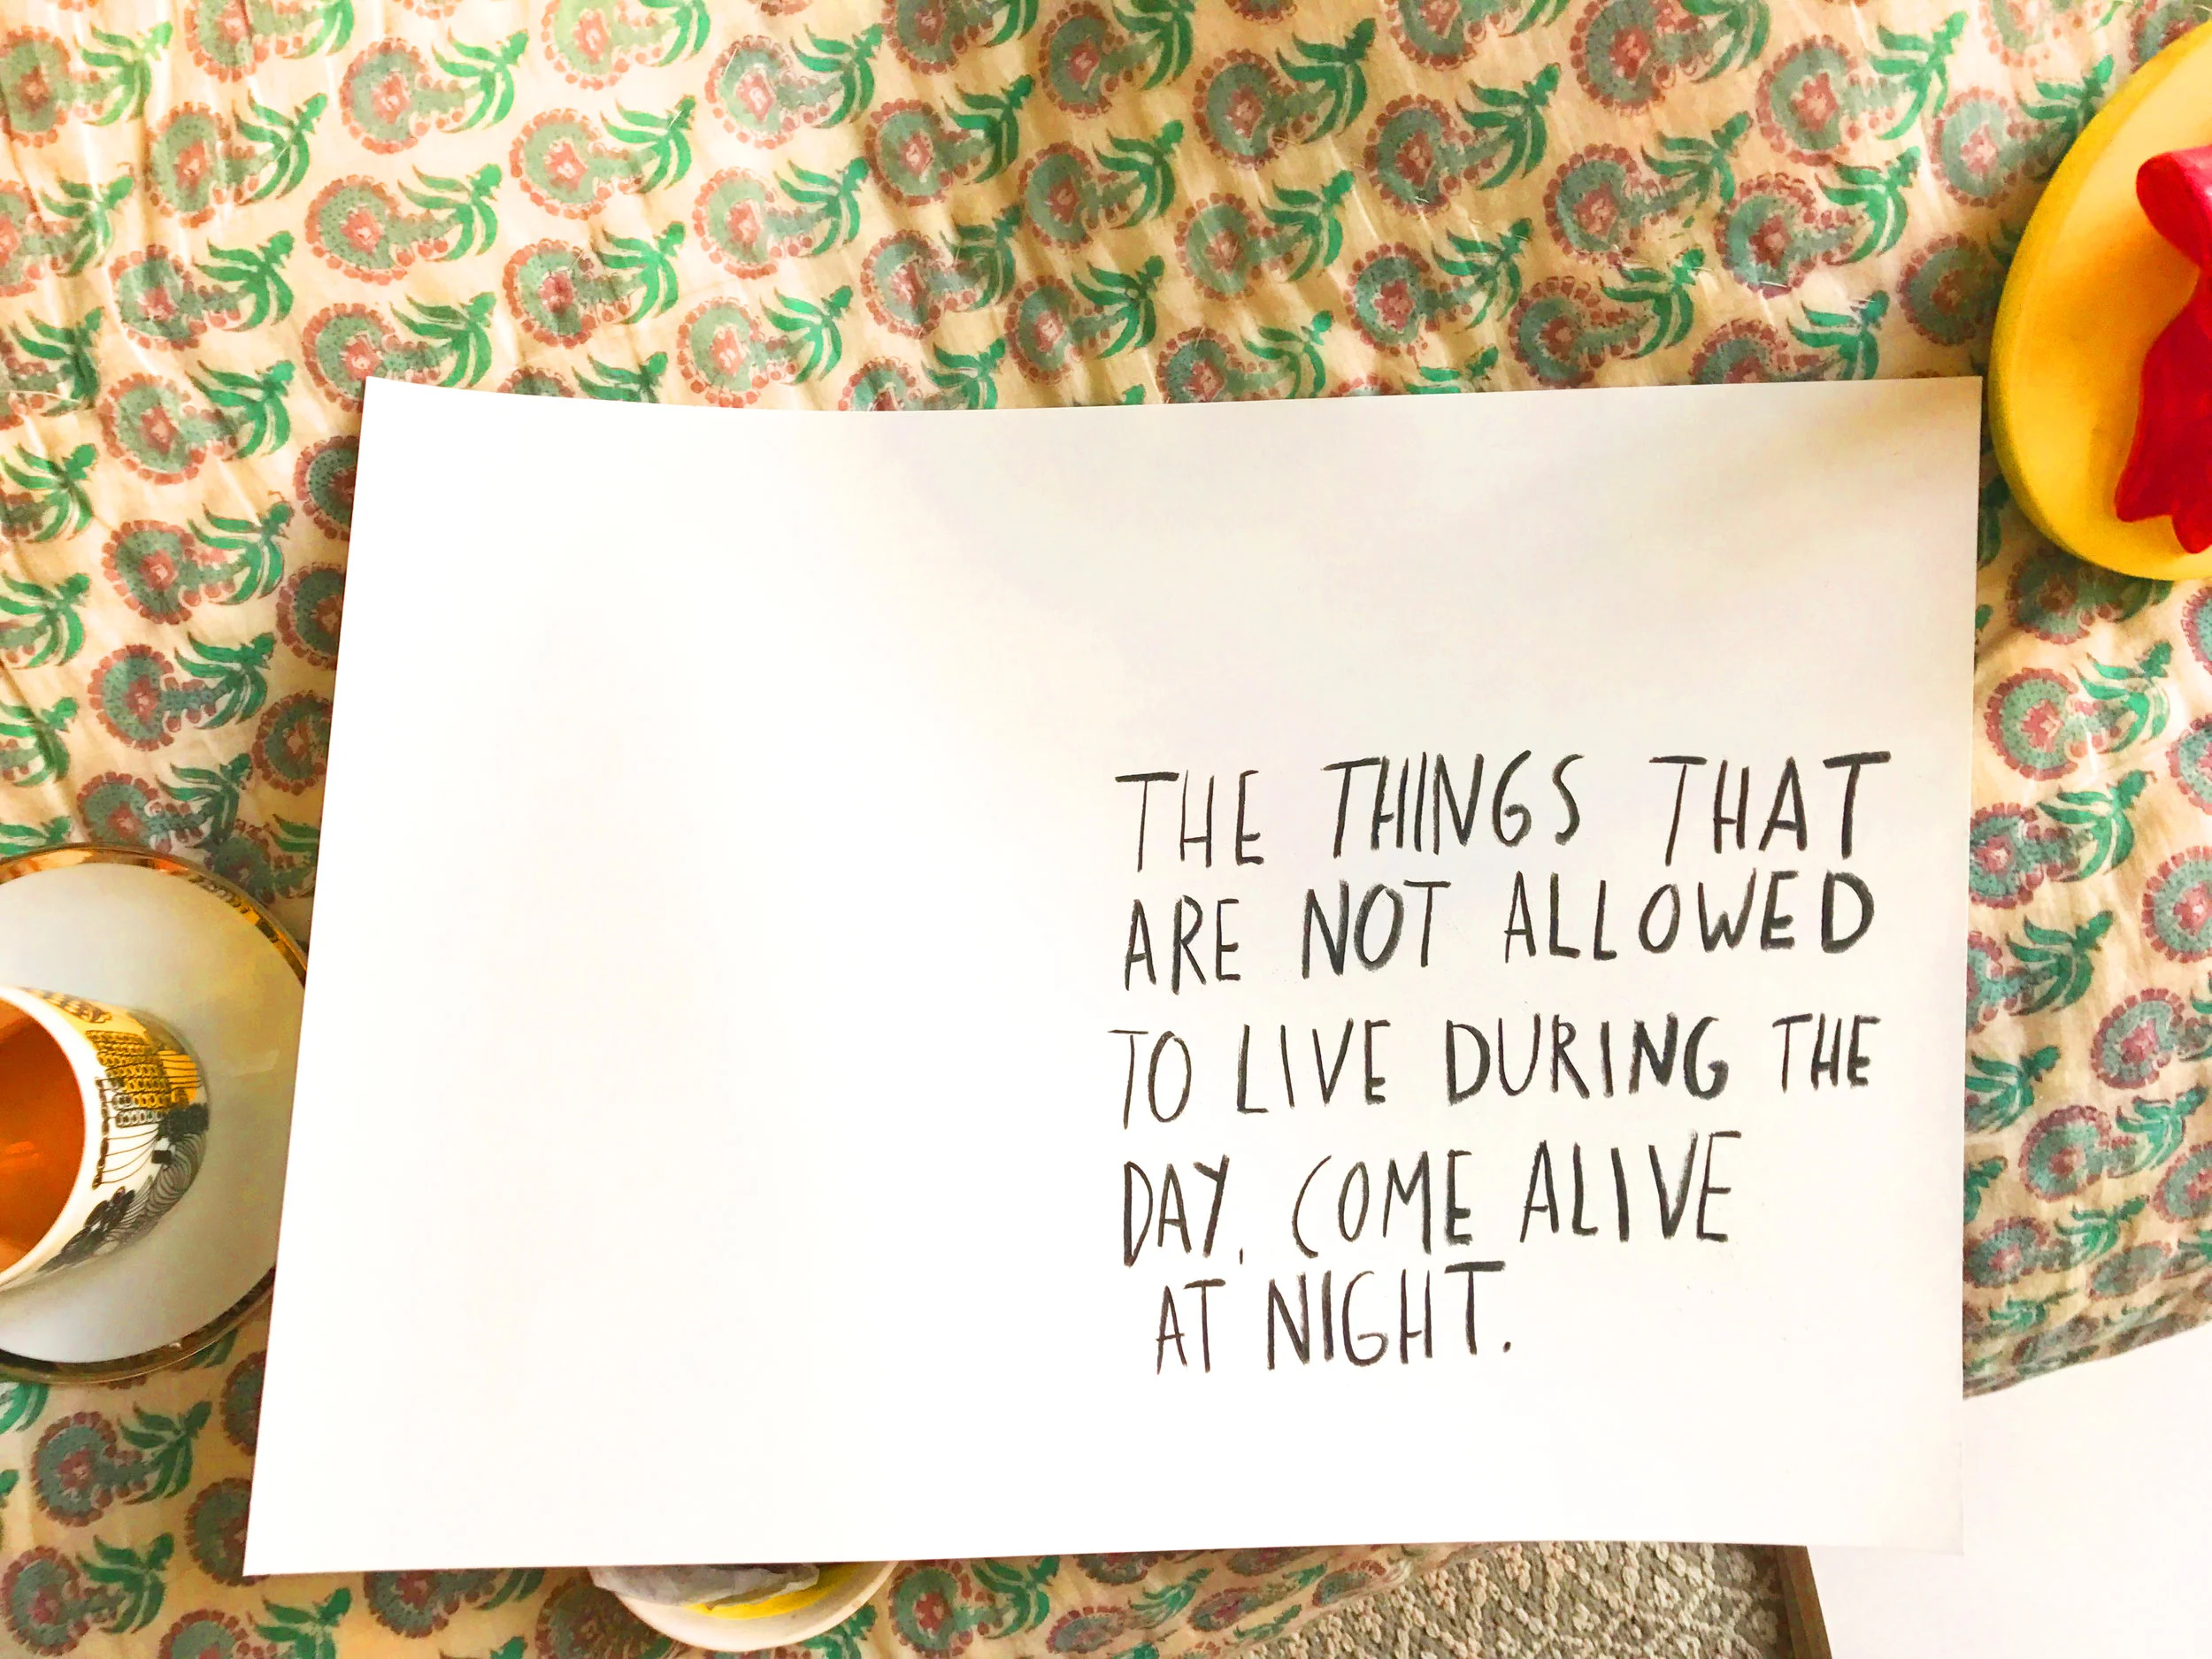 THE THINGS THAT
ARE NOT ALLOWED
TO LIVE DURING THE
DAY, COME ALIVE
AT NIGHT.